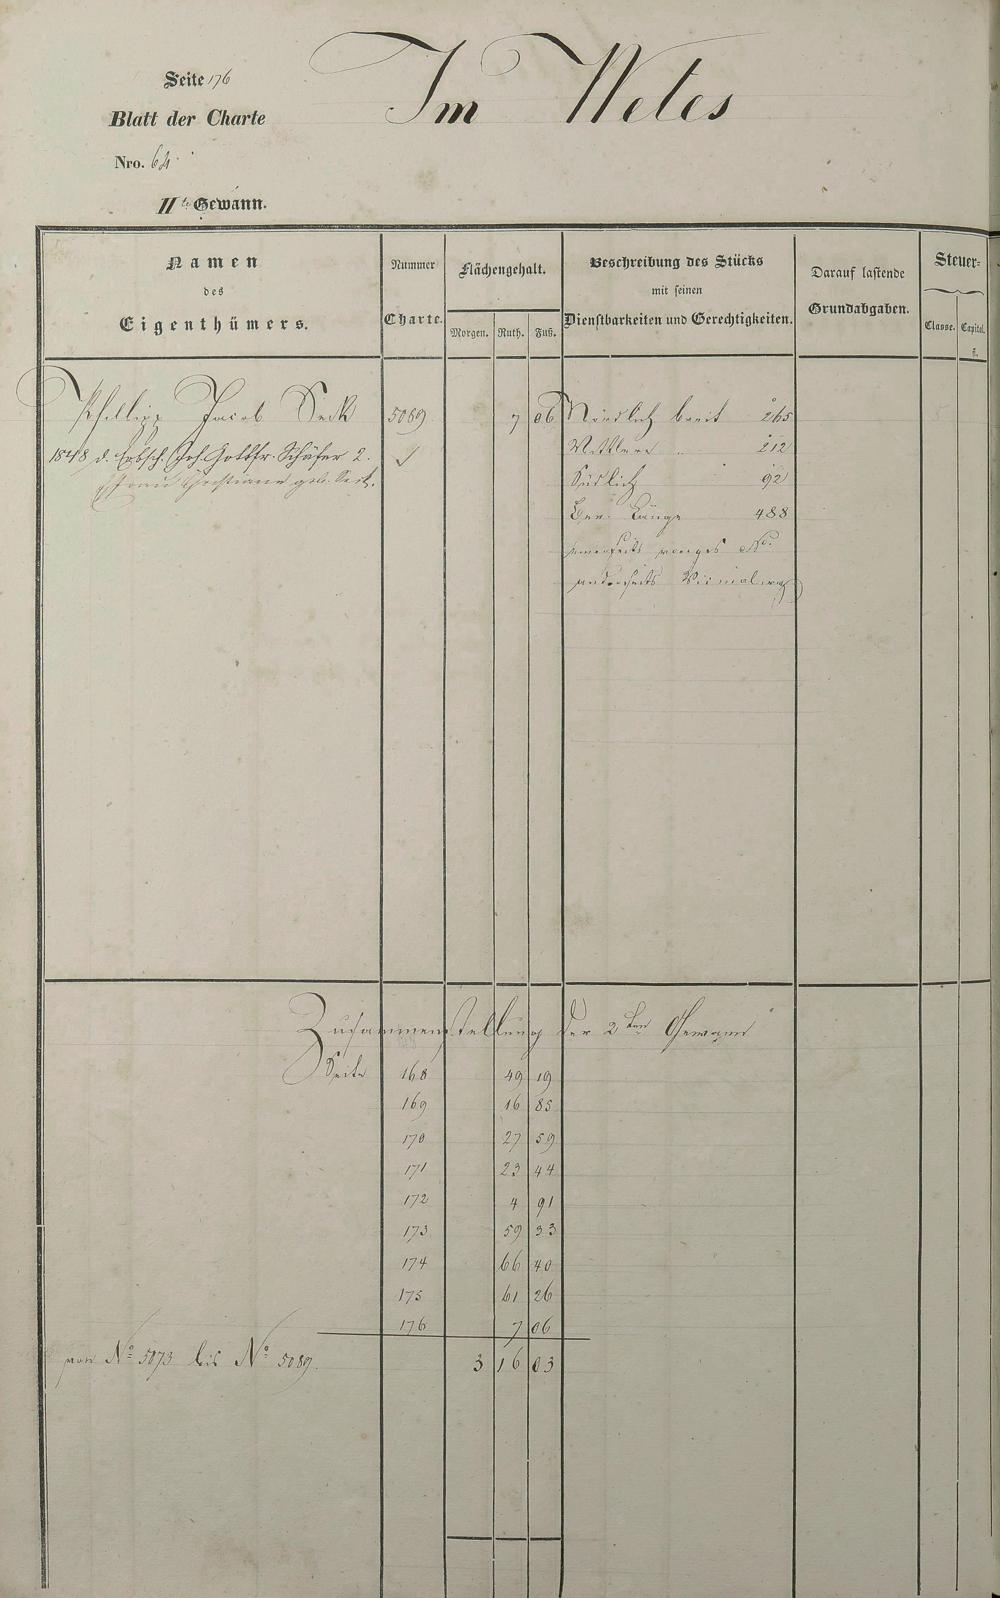 Seite 176
Im Wetes
Blatt der Charte
Nro. 64.
IIte Gewann.
Namen
des
Eigenthümers.
Nummer
Charte.
Flächengehalt.
Morgen. Ruth. Fuß.
Beschreibung des Stücks
mit seinen
Dienstbarkeiten und Gerechtigkeiten.
Darauf lastende
Grundabgaben.
Steuer-
Classe. Capital.
fl.
Phillipp Jacob Seck 5089 7 06 Nördlich breit 265
1848 d. Erbsch. Joh. Gottfr. Schäfer 2. Mittlere .. 212
Frau Christiane geb. Seck. Südlich 92
Länge 488
einerseits voriges No.
anderseits Vicinalweg
Zusammenstellung der 2ten Gewann
Seite 168 49 19
169 16 85
170 27 59
171 23 44
172 4 91
173 59 33
174 66 40
175 61 26
176 7 06
von No 5073 bis No 5089. 3 16 03